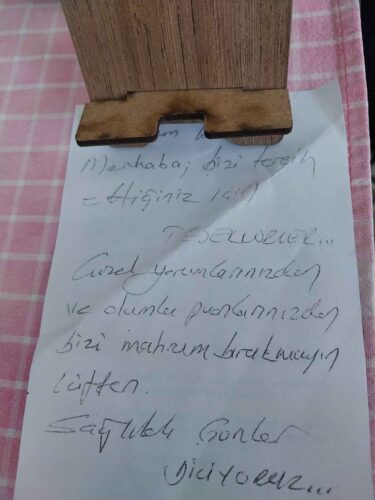 Merhaba; bizi tercih
ettiğiniz için
TEŞEKKÜRLER...
Güzel yorumlarınızdan
ve olumlu puanlarınızdan
bizi mahrum bırakmayın
lütfen.
Sağlıklı Günler
DİLİYORUZ...